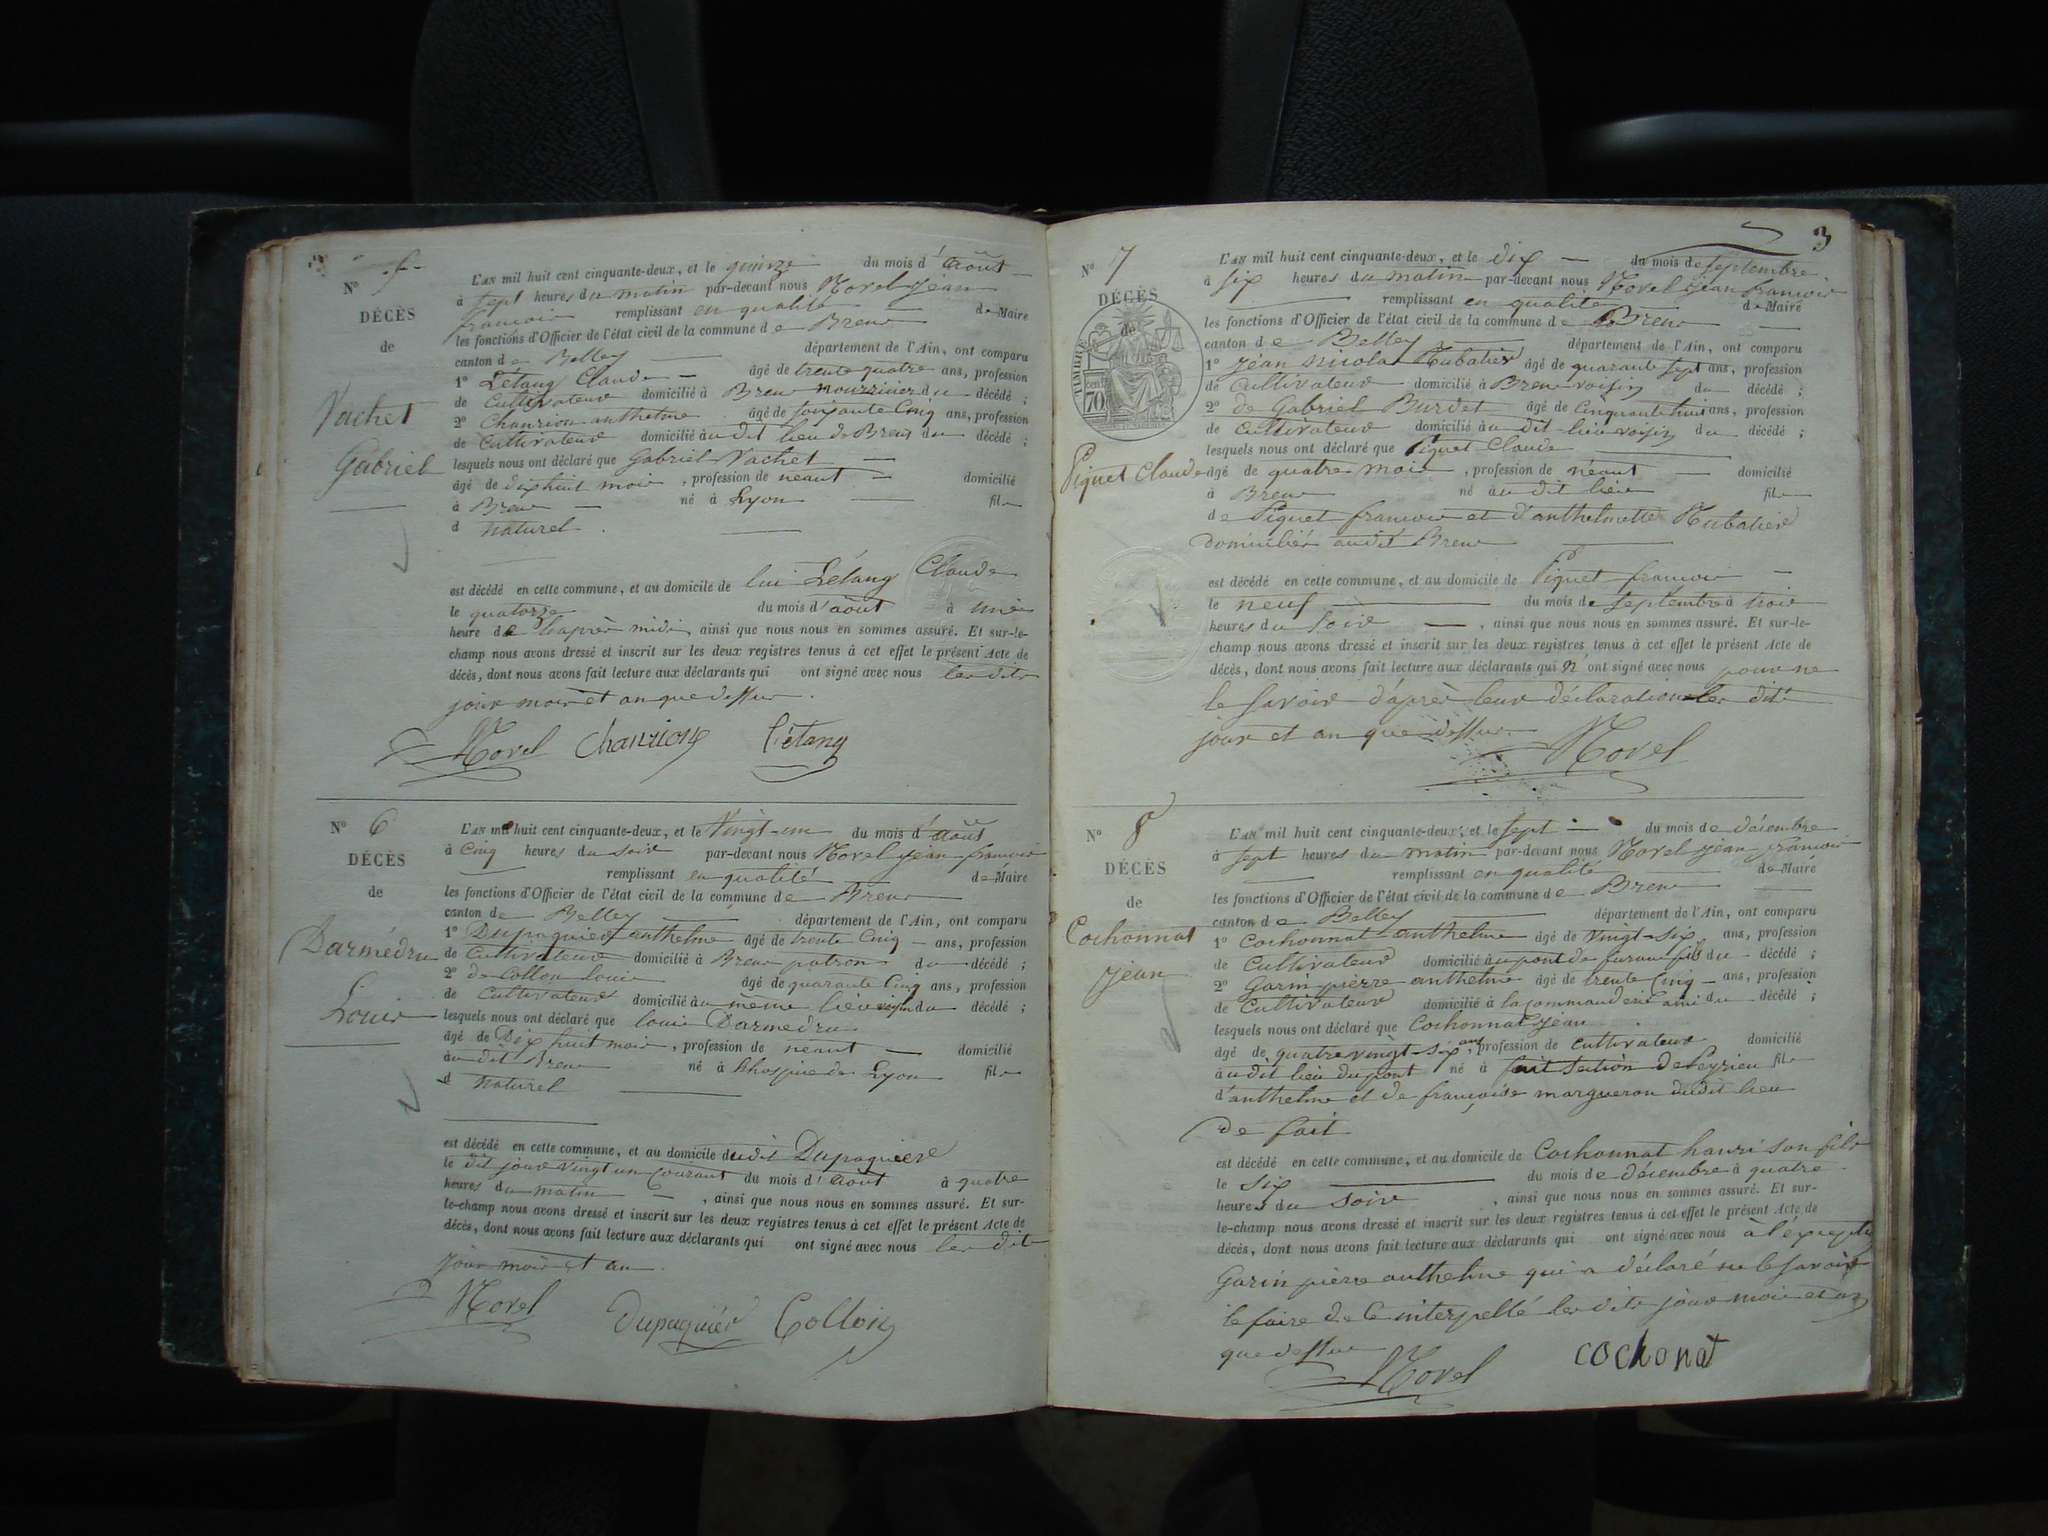 N° 5
DÉCÈS
de
Vachet
Gabriel
L'AN mil huit cent cinquante-deux, et le quinze du mois d'août
à sept heures du matin par-devant nous Morel jean
francois remplissant en qualité de Maire
les fonctions d'Officier de l'état civil de la commune de Brens
canton de Belley département de l'Ain, ont comparu
1° Létang Claude âgé de trente quatre ans, profession
de Cultivateur domicilié à Brens nourricier du décédé ;
2° Chanrion anthelme âgé de soixante Cinq ans, profession
de Cultivateur domicilié àu dit lieu de Brens du décédé ;
lesquels nous ont déclaré que Gabriel Vachet
âgé de dix huit mois , profession de néant domicilié
à Brens né à Lyon fils
d naturel
est décédé en cette commune, et au domicile de lui Létang Claude
le quatorze du mois d'août à une
heure de l'après midi, ainsi que nous nous en sommes assuré. Et sur-le-
champ nous avons dressé et inscrit sur les deux registres tenus à cet effet le présent Acte de
décès, dont nous avons fait lecture aux déclarants qui ont signé avec nous les dits
jour mois et an que dessus.
Morel Chanrion Létang
N° 6
DÉCÈS
de
Darmédru
Louis
L'AN mil huit cent cinquante-deux, et le Vingt-un du mois d'août
à Cinq heures du soir par-devant nous Morel jean françois
remplissant en qualité de Maire
les fonctions d'Officier de l'état civil de la commune de Brens
canton de Belley département de l'Ain, ont comparu
1° Dupaquier anthelme âgé de trente Cinq ans, profession
de Cultivateur domicilié à Brens patron du décédé ;
2° de Collon louis âgé de quarante Cinq ans, profession
de Cultivateur domicilié àu même lieu voisin du décédé ;
lesquels nous ont déclaré que louis Darmedru
âgé de Dix huit mois , profession de néant domicilié
àu dit Brens né à lhospice de Lyon fils
d naturel
est décédé en cette commune, et au domicile dudit Dupaquier
le dit jour vingt un Courant du mois d'août à quatre
heures du matin , ainsi que nous nous en sommes assuré. Et sur-
le-champ nous avons dressé et inscrit sur les deux registres tenus à cet effet le présent Acte de
décès, dont nous avons fait lecture aux déclarants qui ont signé avec nous les dits
jour mois et an.
Morel Dupaquier Collon
3
N° 7
DÉCÈS
de
TIMBRE
70 cent.
Piquet Claude
L'AN mil huit cent cinquante-deux, et le dix du mois de septembre
à six heures du matin par-devant nous Morel jean francois
remplissant en qualité de Maire
les fonctions d'Officier de l'état civil de la commune de Brens
canton de Belley département de l'Ain, ont comparu
1° jean nicolas Rubatier âgé de quarante sept ans, profession
de Cultivateur domicilié à Brens voisin du décédé ;
2° de Gabriel Burdet âgé de Cinquante huit ans, profession
de Cultivateur domicilié àu dit lieu voisin du décédé ;
lesquels nous ont déclaré que Piquet Claude
âgé de quatre mois , profession de néant domicilié
à Brens né àu dit lieu fils
de Piquet francois et d'anthelmette Rubatier
domiciliés audit Brens
est décédé en cette commune, et au domicile de Piquet francois
le neuf du mois de septembre à trois
heures du soir , ainsi que nous nous en sommes assuré. Et sur-le-
champ nous avons dressé et inscrit sur les deux registres tenus à cet effet le présent Acte de
décès, dont nous avons fait lecture aux déclarants qui n'ont signé avec nous pour ne
le savoir d'après leur déclaration les dits
jour et an que dessus.
Morel
N° 8
DÉCÈS
de
Cochonnat
jean
L'AN mil huit cent cinquante-deux, et le sept du mois de décembre
à sept heures du matin par-devant nous Morel jean francois
remplissant en qualité de Maire
les fonctions d'Officier de l'état civil de la commune de Brens
canton de Belley département de l'Ain, ont comparu
1° Cochonnat anthelme âgé de vingt-six ans, profession
de Cultivateur domicilié àu pont de furans fils du décédé ;
2° Garin pierre anthelme âgé de trente Cinq ans, profession
de Cultivateur domicilié à la Commanderie ami du décédé ;
lesquels nous ont déclaré que Cochonnat jean
âgé de quatre vingt-six ans, profession de cultivateur domicilié
àu dit lieu du pont né à fait section de Peyzieu fils
d'anthelme et de françoise margueron dudit lieu
de fait
est décédé en cette commune, et au domicile de Cochonnat hanri son fils
le six du mois de décembre à quatre
heures du soir , ainsi que nous nous en sommes assuré. Et sur-
le-champ nous avons dressé et inscrit sur les deux registres tenus à cet effet le présent Acte de
décès, dont nous avons fait lecture aux déclarants qui ont signé avec nous à l'éxeption
Garin pierre anthelme qui a déclaré ne le savoir
le faire de Ce interpellé les dits jour mois et an
que dessus
Morel cochonat